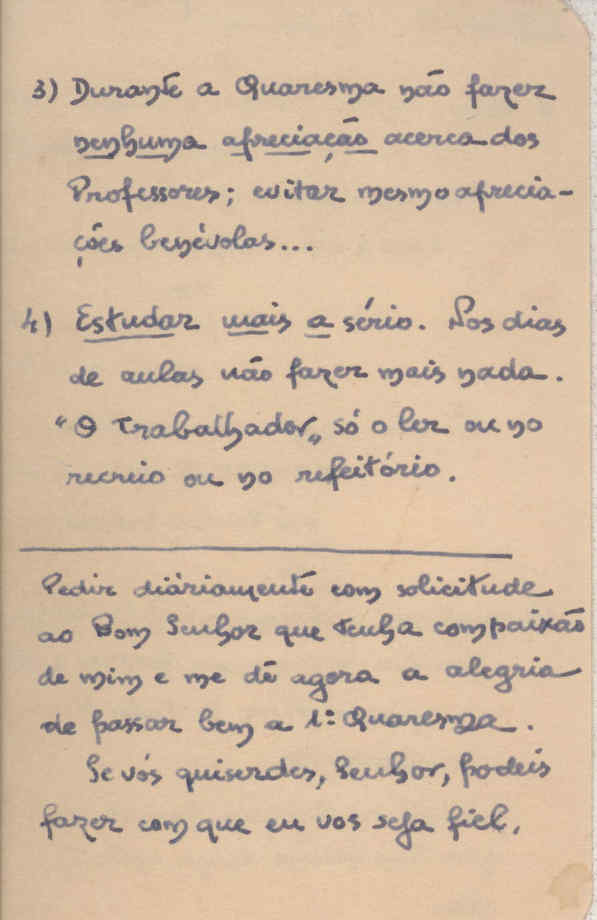 3) Durante a Quaresma não fazer
nenhuma apreciação acerca dos
Professores; evitar mesmo aprecia-
ções benévolas...
4) Estudar mais a sério. Nos dias
de aulas não fazer mais nada.
"O Trabalhador„ só o ler ou no
recreio ou no refeitório.
Pedir diàriamente com solicitude
ao Bom Senhor que tenha compaixão
de mim e me dê agora a alegria
de passar bem a 1ª Quaresma.
Se vós quiserdes, Senhor, podeis
fazer com que eu vos seja fiel.